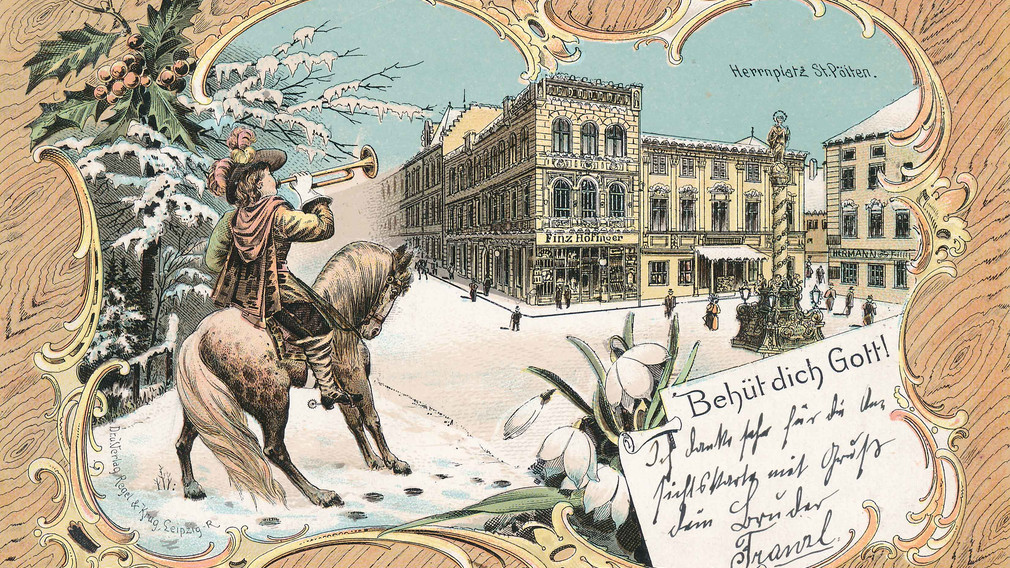 Herrnplatz St.Pölten.
Finz Höfinger
Behüt dich Gott!
Ich danke sehr für die An-
sichtskarte mit Gruß
dein Bruder
Franzl.
Dru.Verlag Regel & Krug, Leipzig.R